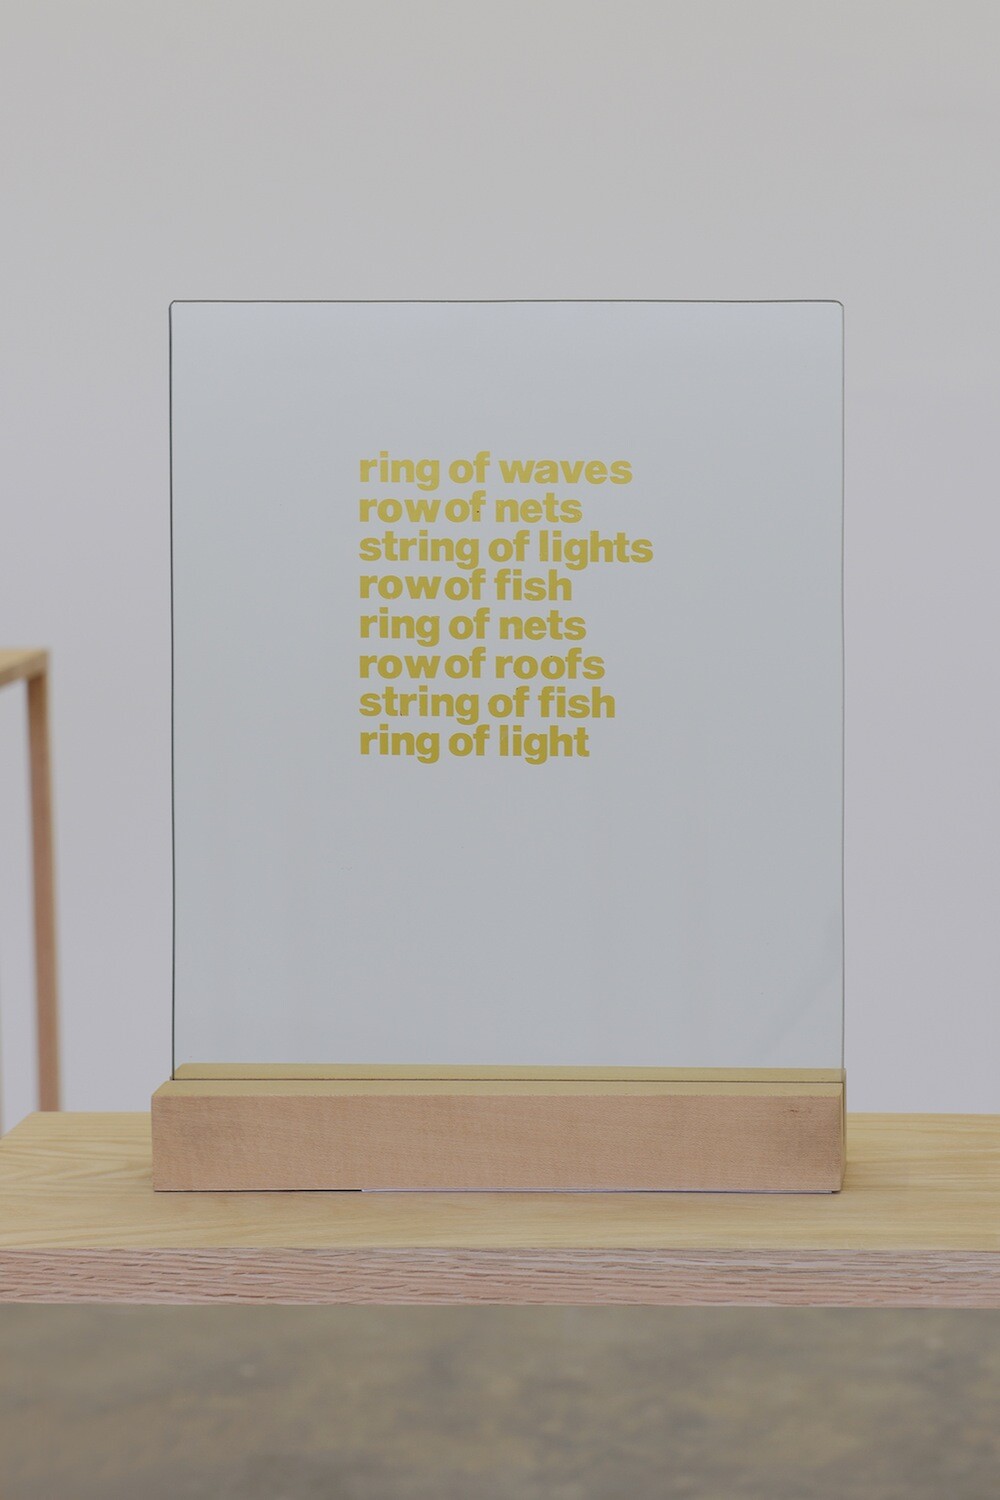 ring of waves
row of nets
string of lights
row of fish
ring of nets
row of roofs
string of fish
ring of light